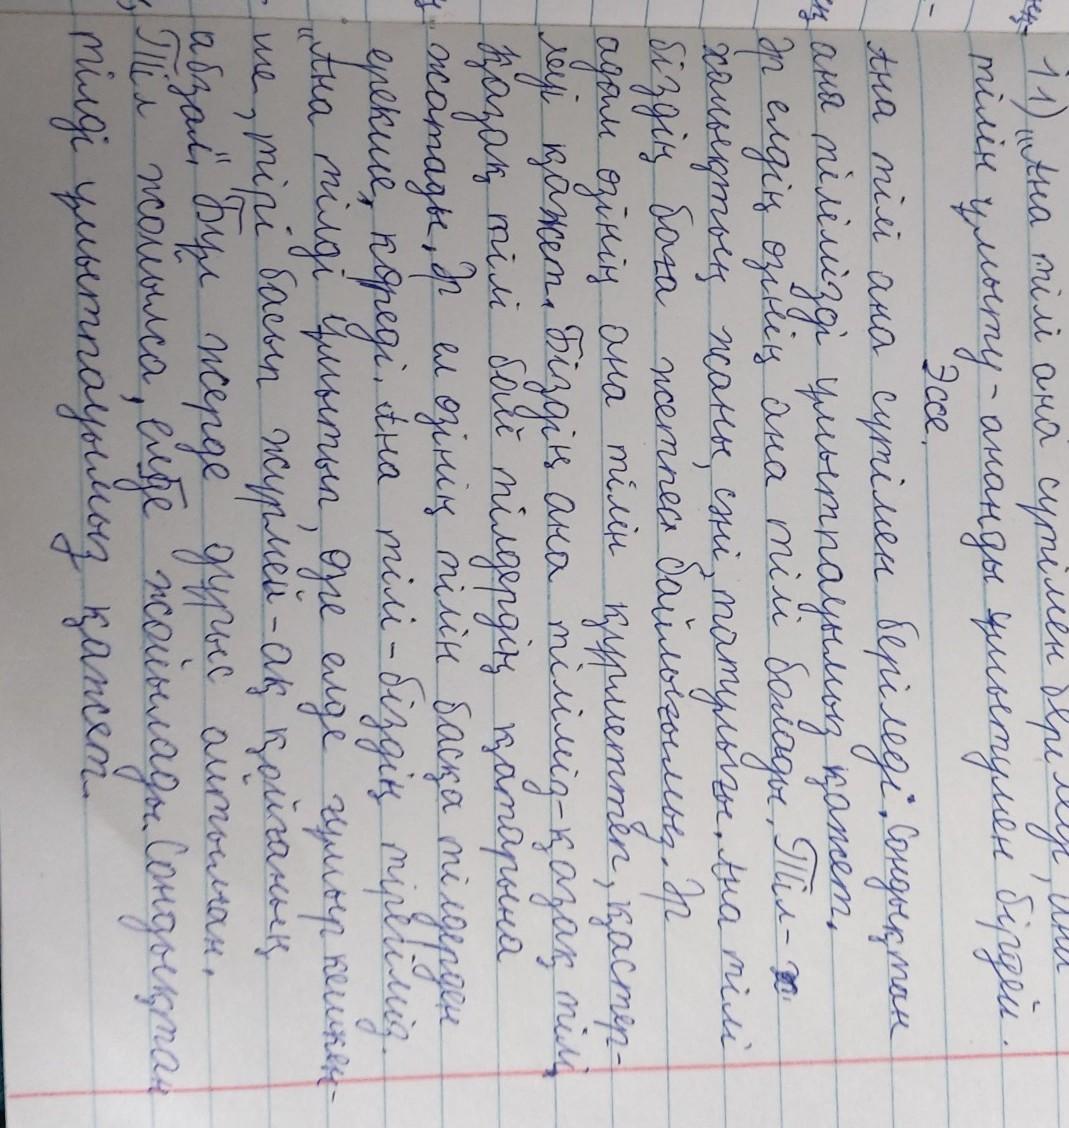 11) „Ана тілі ана сүтімен беріледі, ана
тілін ұмыту - анаңды ұмытумен бірдей.
Эссе.
Ана тілі ана сүтімен беріледі. Сондықтан
ана тілімізді ұмытпауымыз қажет.
Әр елдің өзінің ана тілі болады. Тіл -
халықтың жаны, сәні, тұтқырлығы. Ана тілі
біздің баға жетпес байлығымыз. Әр
адам өзінің ана тілін құрметтеп, қастер-
леуі қажет. Біздің ана тіліміз - қазақ тілі.
Қазақ тілі бай тілдердің қатарына
жатады. Әр ел өзінің тілін басқа тілдерден
ерекше көреді. Ана тілі - біздің тірегіміз.
„Ана тілді ұмытып, өзге елде ғұмыр кешкен-
ше, тірі басып жүрмей-ақ қойғаның
абзал". Бұл жерде дұрыс айтылған.
Тіл жойылса, елде жойылады. Сондықтан
тілді ұмытпауымыз қажет.